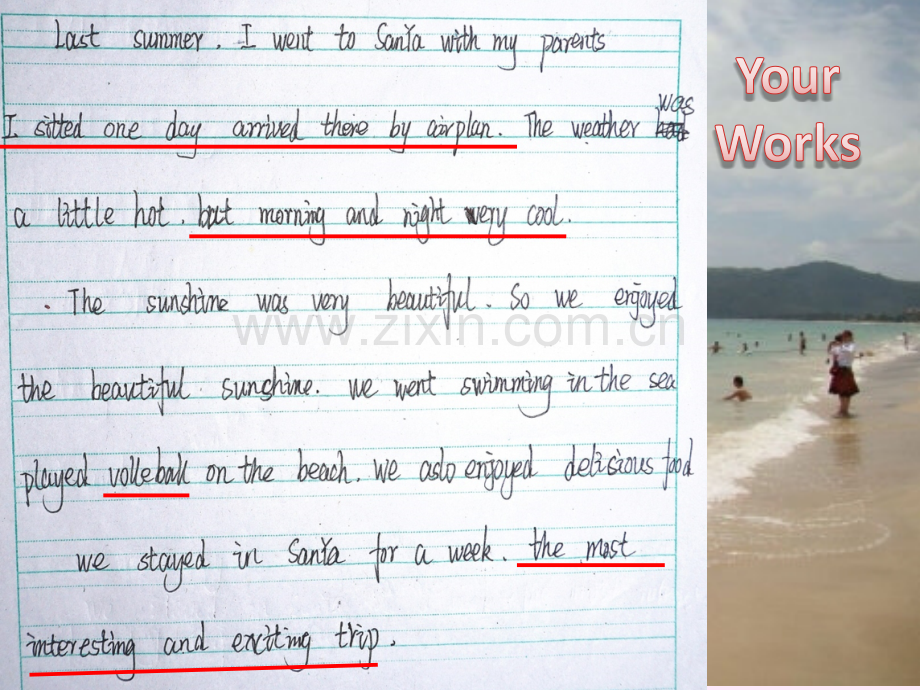 Last summer. I went to SanYa with my parents
I sitted one day arrived there by airplan. The weather was
a little hot. but morning and night very cool.
The sunshine was very beautiful. So we enjoyed
the beautiful sunshine. we went swimming in the sea
played volleball on the beach. we aslo enjoyed delisious food
we stayed in SanYa for a week. the most
interesting and exciting trip.
Your
Works
www.zixin.com.cn